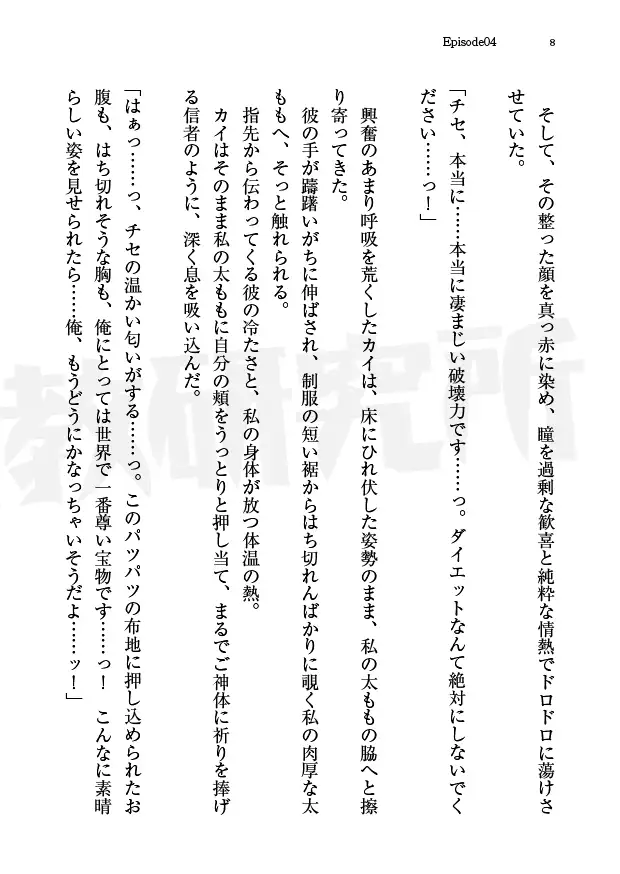 Episode04
8
そして、その整った顔を真っ赤に染め、瞳を過剰な歓喜と純粋な情熱でドロドロに蕩けさ
せていた。
「チセ、本当に……本当に凄まじい破壊力です……っ。ダイエットなんて絶対にしないでく
ださい……っ！」
興奮のあまり呼吸を荒くしたカイは、床にひれ伏した姿勢のまま、私の太ももの脇へと擦
り寄ってきた。
彼の手が躊躇いがちに伸ばされ、制服の短い裾からはち切れんばかりに覗く私の肉厚な太
ももへ、そっと触れられる。
指先から伝わってくる彼の冷たさと、私の身体が放つ体温の熱。
カイはそのまま私の太ももに自分の頬をうっとりと押し当て、まるでご神体に祈りを捧げ
る信者のように、深く息を吸い込んだ。
「はぁっ……っ、チセの温かい匂いがする……っ。このパツパツの布地に押し込められたお
腹も、はち切れそうな胸も、俺にとっては世界で一番尊い宝物です……っ！　こんなに素晴
らしい姿を見せられたら……俺、もうどうにかなっちゃいそうだよ……ッ！」
教研究所